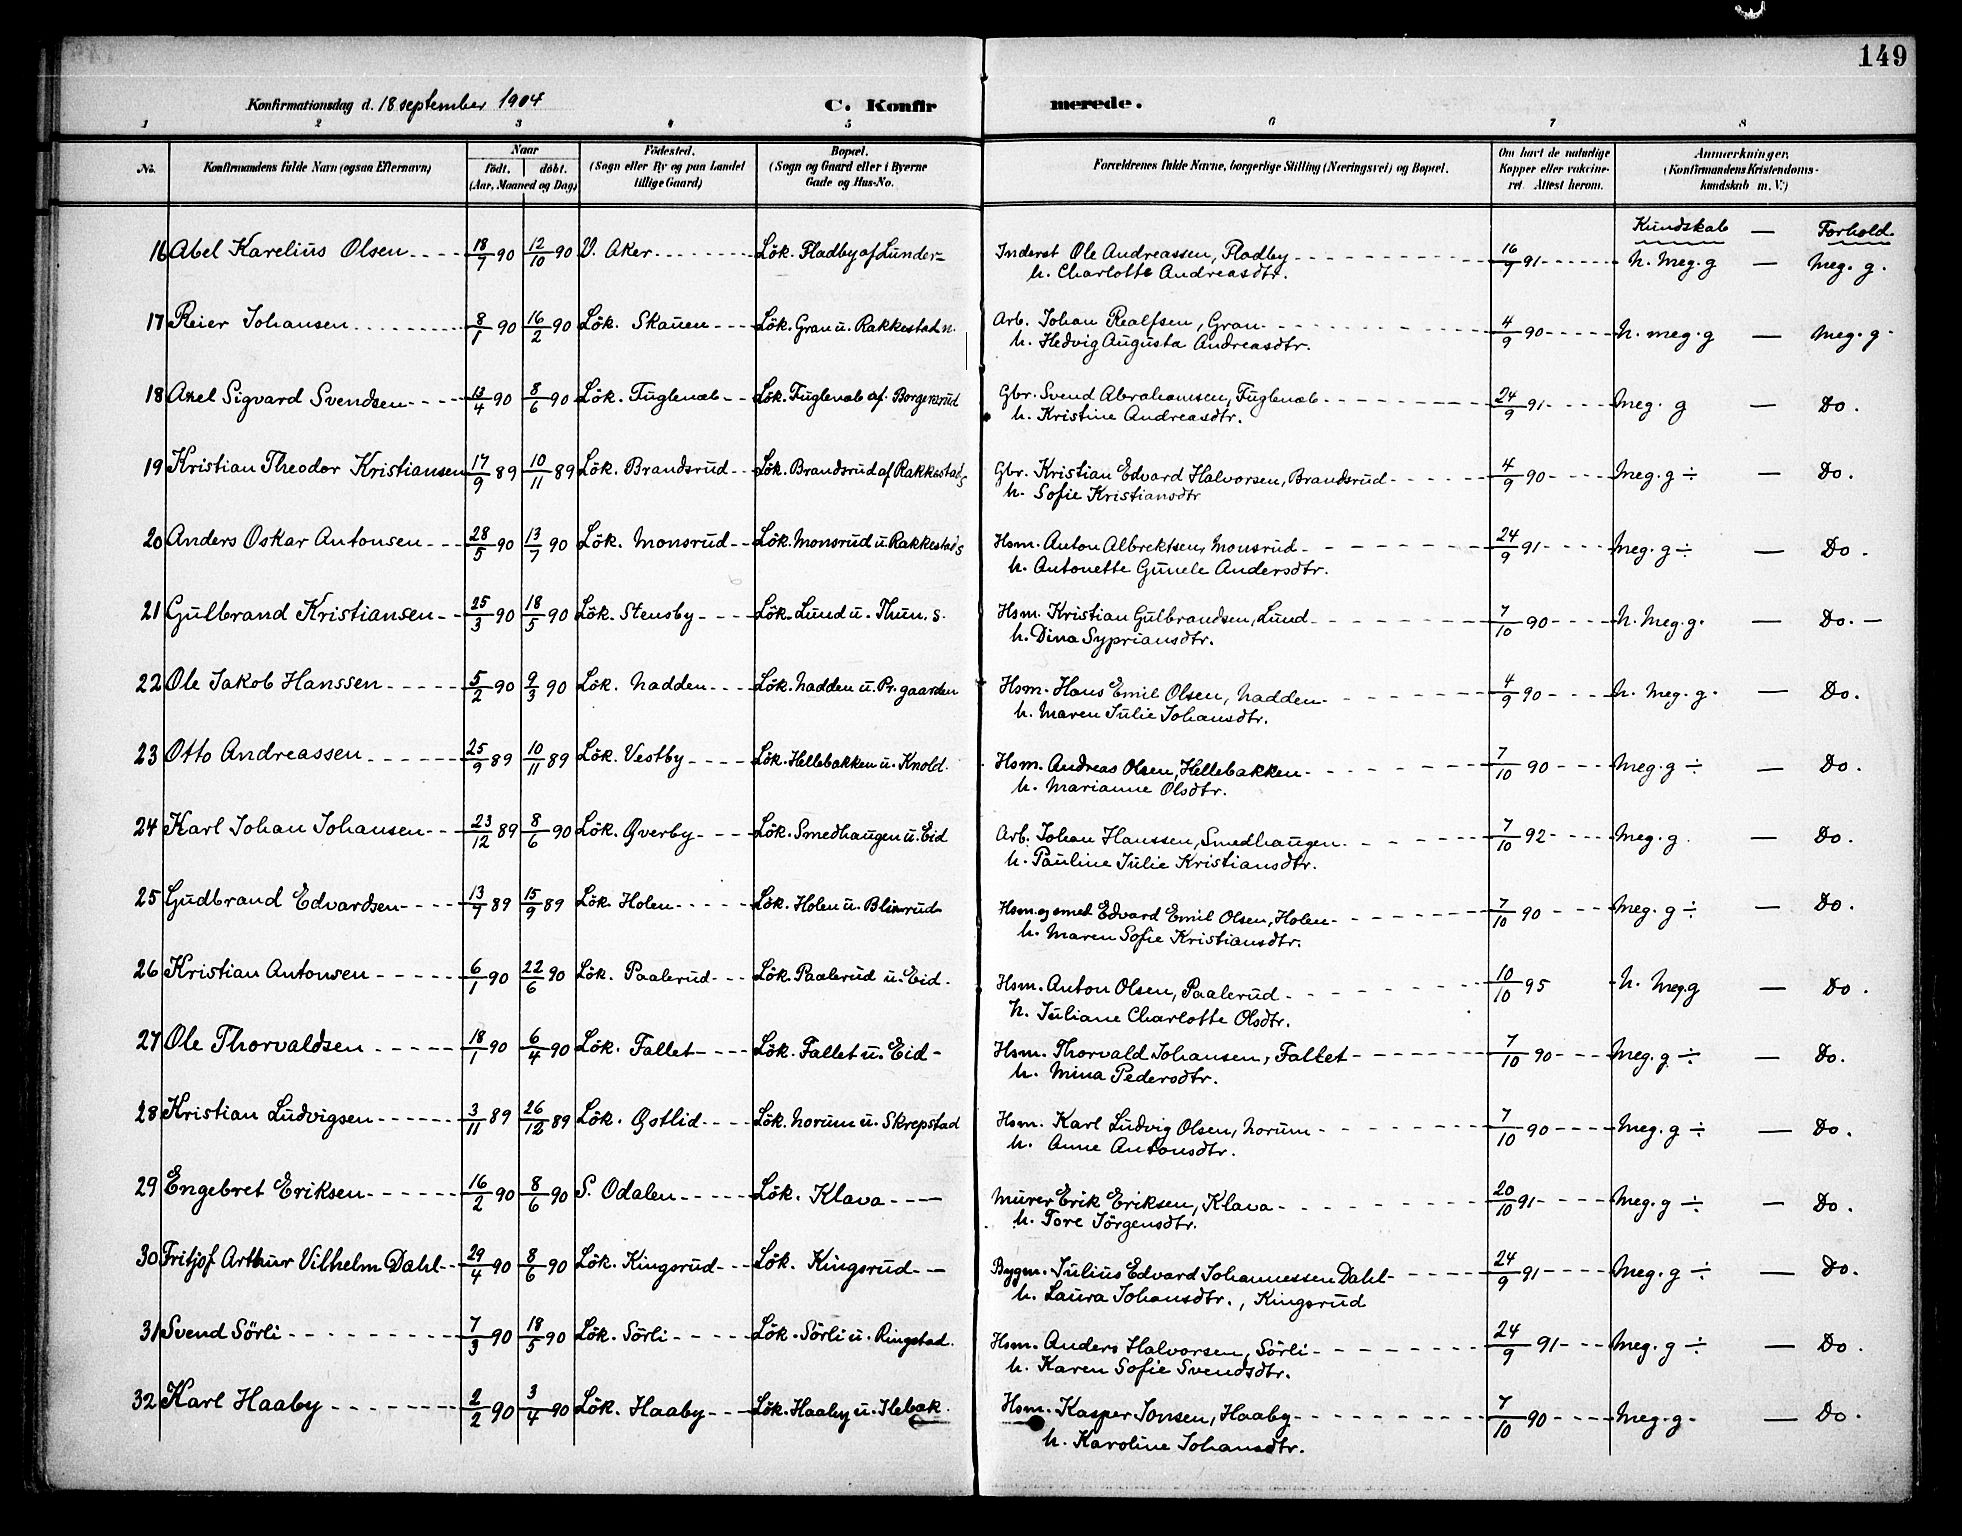 149
Konfirmationsdag d. 18 september 1904 C. Konfirmerede.
1 2 3 4 5 6 7 8
No. Konfirmandens fulde Navn (ogsaa Efternavn) Naar født. døbt. (Aar, Maaned og Dag) Fødested. (Sogn eller By og paa Landet tillige Gaard) Bopæl. (Sogn og Gaard eller i Byerne Gade og Hus-No. Forældrenes fulde Navne, borgerlige Stilling (Næringsvei) og Bopæl. Om havt de naturlige Kopper eller vaccineret. Attest herom. Anmerkninger. (Konfirmandens Kristendomskundskab m. V.)
Kundskab — Forhold
16 Abel Karelius Olsen 18/7 90 12/10 90 V. Aker Lök. Fladby af Lunder Inderst Ole Andreassen, Fladby 16/9 91 N. Meg. g — Meg. g.
h. Charlotte Andreasdtr.
17 Reier Johansen 8/1 90 16/2 90 Lök. Skauen Lök. Gran u. Rakkestad n. Arb. Johan Realfsen, Gran 4/9 90 N. meg. g — Meg. g
h. Hedvig Augusta Andreasdtr.
18 Axel Sigvard Svendsen 13/4 90 8/6 90 Lök. Fuglenæb Lök. Fuglenæb af Borgersrud Gbr. Svend Abrahamsen, Fuglenæb 24/9 91 Meg. g — Do.
h. Kristine Andreasdtr.
19 Kristian Theodor Kristiansen 17/9 89 10/11 89 Lök. Brandsrud Lök. Brandsrud af Rakkestad s Gbr. Kristian Edvard Halvorsen, Brandsrud 4/9 90 Meg. g ÷ — Do.
h. Sofie Kristiansdtr
20 Anders Oskar Antonsen 28/5 90 13/7 90 Lök. Monsrud Lök. Monsrud u. Rakkestad s Hsm. Anton Albrektsen, Monsrud 24/9 91 Meg. g ÷ — Do.
h. Antonette Gunele Andersdtr.
21 Gulbrand Kristiansen 25/3 90 18/5 90 Lök. Stensby Lök. Lund u. Thun. s. Hsm. Kristian Gulbrandsen, Lund 7/10 90 N. Meg. g. — Do. —
h. Dina Sypriansdtr.
22 Ole Jakob Hanssen 5/2 90 9/3 90 Lök. Nadden Lök. Nadden u. Pr. gaarden Hsm. Hans Emil Olsen, Nadden 4/9 90 N. Meg. g. — Do.
h. Maren Julie Johansdtr.
23 Otto Andreassen 25/9 89 10/11 89 Lök. Vestby Lök. Hellebakken u. Knold. Hsm. Andreas Olsen, Hellebakken 7/10 90 Meg. g ÷ — Do.
h. Marianne Olsdtr.
24 Karl Johan Johansen 23/12 89 8/6 90 Lök. Qverby Lök. Smedhaugen u. Eid Arb. Johan Hanssen, Smedhaugen 7/10 92 Meg. g. — Do.
h. Pauline Julie Kristiansdtr.
25 Gudbrand Edvardsen 13/7 89 15/9 89 Lök. Holen Lök. Holen u. Blixrud Hsm. og smed Edvard Emil Olsen, Holen 7/10 90 Meg. g ÷ — Do.
h. Maren Sofie Kristiansdtr.
26 Kristian Antonsen 6/1 90 22/6 90 Lök. Paalerud Lök. Paalerud u. Eid. Hsm. Anton Olsen, Paalerud 10/10 95 N. Meg. g — Do.
h. Juliane Charlotte Olsdtr.
27 Ole Thorvaldsen 18/1 90 6/4 90 Lök. Fallet Lök. Fallet u. Eid Hsm. Thorvald Johansen, Fallet 7/10 90 Meg. g ÷ — Do.
h. Mina Pedersdtr.
28 Kristian Ludvigsen 3/11 89 26/12 89 Lök. Østlid Lök. Norum u. Skrepstad Hsm. Karl Ludvig Olsen, Norum 7/10 90 Meg. g ÷ — Do.
h. Anne Antonsdtr.
29 Engebret Eriksen 16/2 90 8/6 90 S. Odalen Lök. Klava Murer Erik Eriksen, Klava 20/10 91 Meg. g ÷ — Do.
h. Tore Jörgensdtr.
30 Fritjof Arthur Vilhelm Dahl 29/4 90 8/6 90 Lök. Kingsrud Lök. Kingsrud Bygm. Julius Edvard Johannessen Dahl 24/9 91 Meg. g ÷ — Do.
h. Laura Johansdtr., Kingsrud
31 Svend Sörli 7/3 90 18/5 90 Lök. Sörli Lök. Sörli u. Ringstad. Hsm. Anders Halvorsen, Sörli 24/9 91 Meg. g ÷ — Do.
h. Karen Sofie Svendsdtr.
32 Karl Haaby 2/2 90 3/4 90 Lök. Haaby Lök. Haaby u. Ilebæk. Hsm. Kasper Jonsen, Haaby 7/10 90 Meg. g. — Do.
h. Karoline Johansdtr.